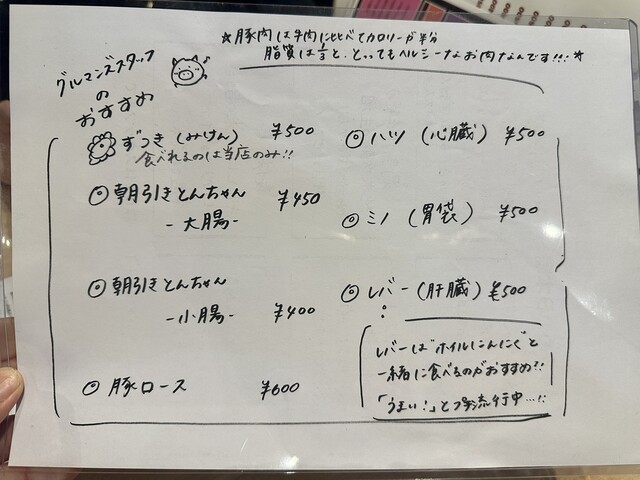 ☆豚肉は牛肉に比べてカロリーが半分
脂質は1/3と、とってもヘルシーなお肉なんです!!!☆
グルマンズスタッフ
の
おすすめ
ずつき(みけん) ¥500
食べれるのは当店のみ!!
◎朝引きとんちゃん ¥450
-大腸-
◎朝引きとんちゃん
-小腸- ¥400
◎豚ロース ¥600
◎ハツ(心臓) ¥500
◎ミノ(胃袋) ¥500
◎レバー(肝臓) ¥500
レバーは"ホイルにんにく"と
一緒に食べるのがおすすめ!!
「うまい!」とプチ流行中...!!